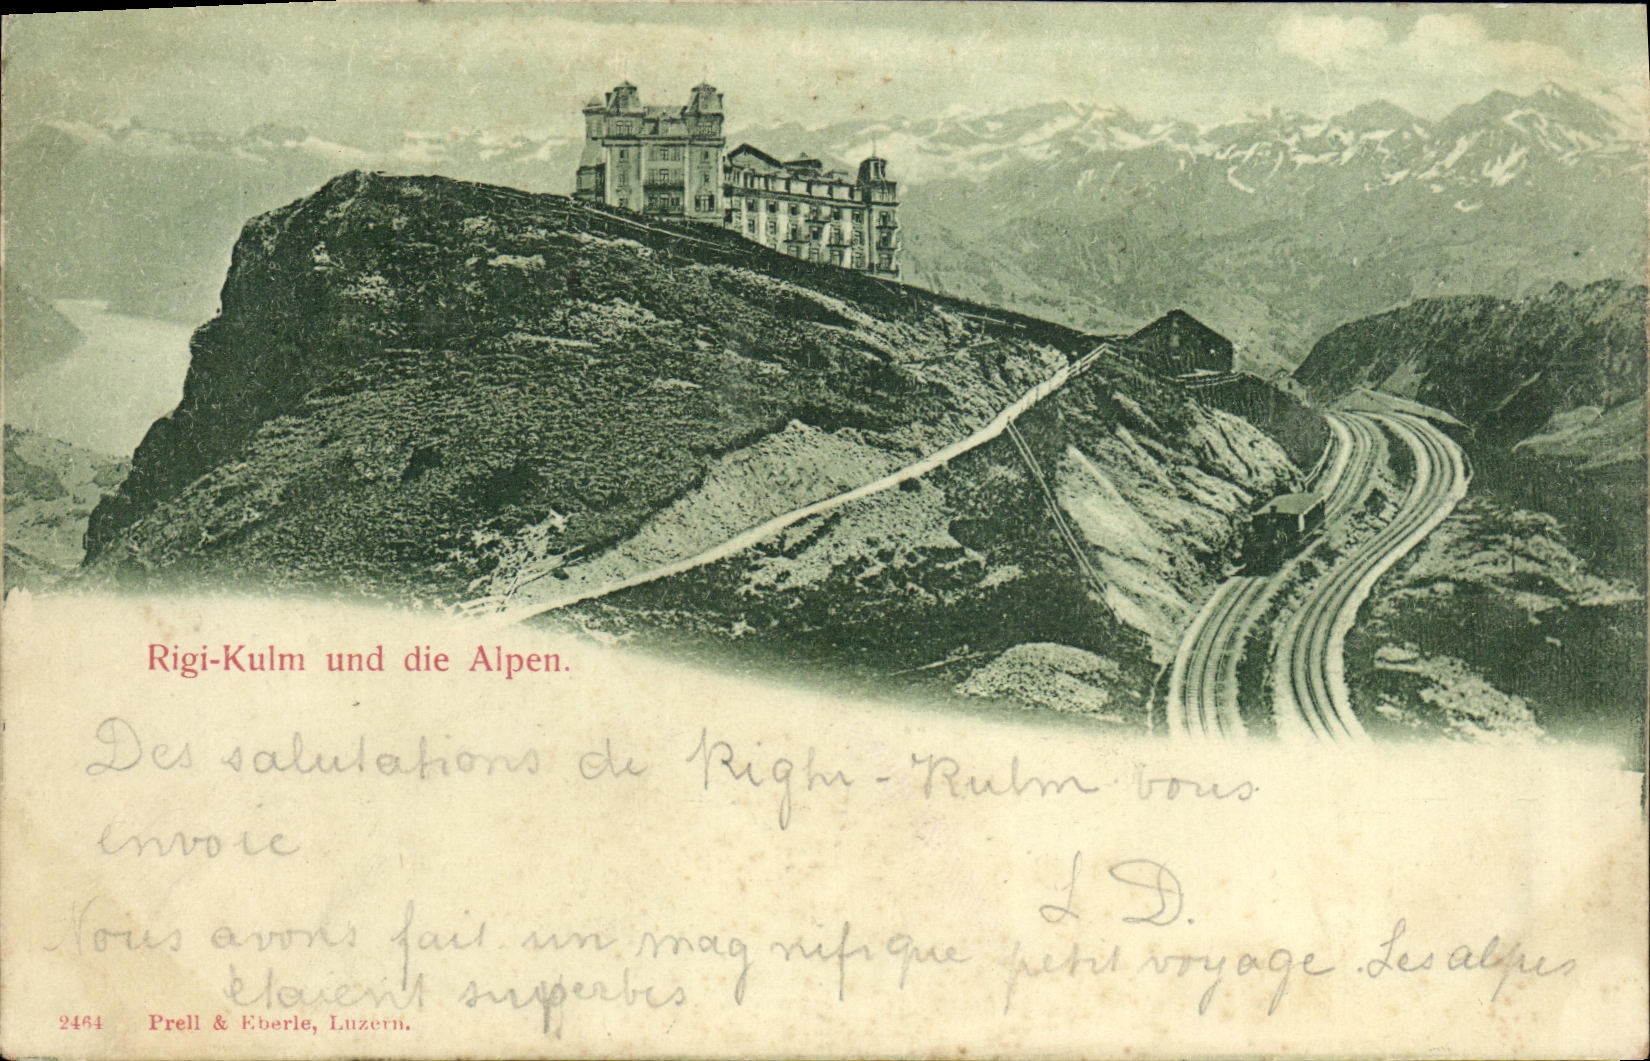 Rigi-Kulm und die Alpen.
Des salutations de Righi-Kulm vous
envoie
L D.
Nous avons fait un magnifique petit voyage. Les alpes
étaient superbes
2464 Prell & Eberle, Luzern.